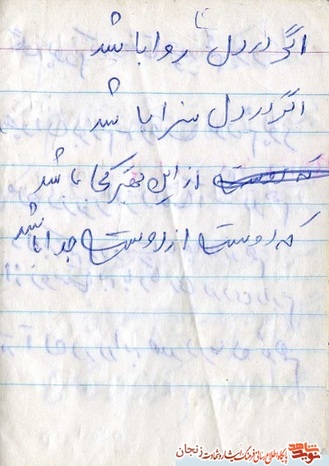 اگر در دل تا روا باشد
اگر در دل سزا باشد
از این بهتر کجا باشد
که دوست از دوست جدا باشد
نوید شاهد
پایگاه اطلاع رسانی فرهنگ ایثار و شهادت زنجان